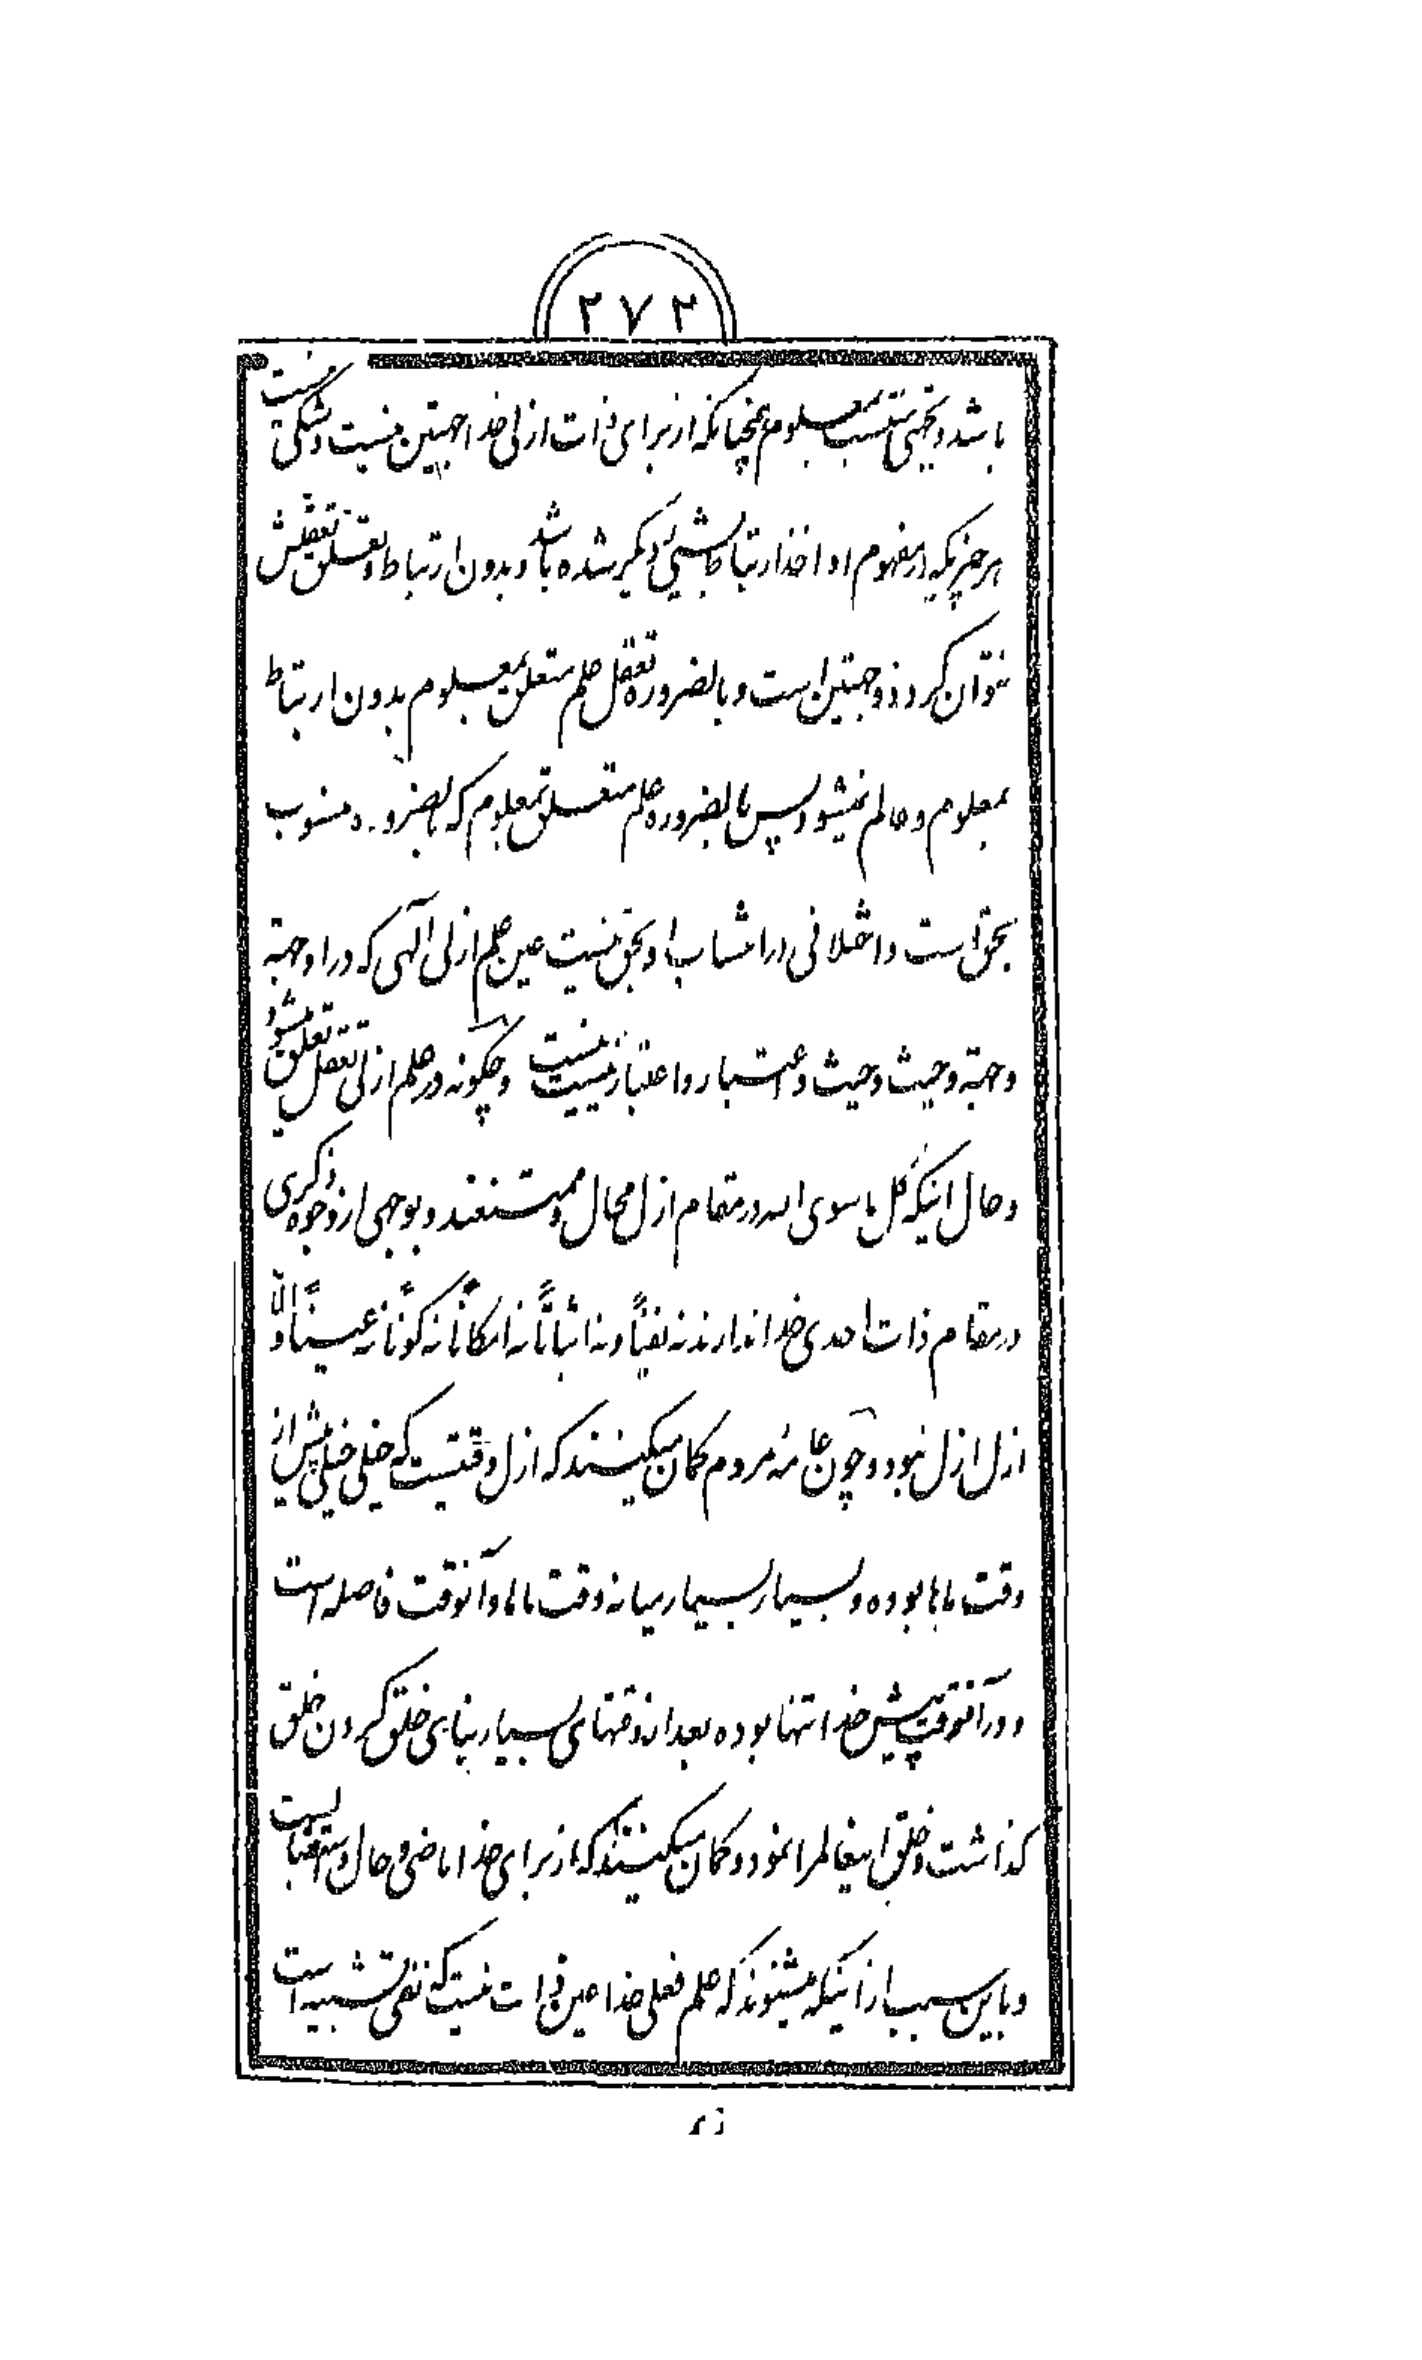 ۲۷۲
باشد و جهتی منتسب بمعلوم همچنانکه از برای ذات ازلی خدا جهتین نیست و شکی نیست
هر چیزیکه در مفهوم او اخذ ارتباط بشیئی دیگر شده باشد و بدون ارتباط و تعلق تعقلش
نتوان کرد ذو جهتین است و بالضروره تعقل علم متعلق بمعلوم بدون ارتباط
بمعلوم و عالم نمیشود پس بالضروره علم متعلق بمعلوم که بالضروره منسوب
بحق است و اختلافی در انتساب او بحق نیست عین علم ازلی الهی که در او جهة
و جهة و حیث و حیث و اعتبار و اعتبار نیست نیست و چگونه در علم ازلی تعقل تعلق میشود
و حال اینکه کل ماسوی الله در مقام ازل محال و ممتنعند و بوجهی از وجوه ذکری
در مقام ذات احدی خدا ندارند نه نفیاً و نه اثباتاً نه امکاناً نه کوناً نه عیناً و الّا
ازل ازل نبود و چون عامهٔ مردم گمان میکنند که ازل وقتیست که خیلی خیلی پیش از
وقت ماها بوده و بسیار بسیار میانه وقت ماها و آنوقت فاصله است
و در آنوقت پیش خدا تنها بوده بعد از وقتهای بسیار بنای خلق کردن خلق
گذاشت و خلق اینعالم را نمود و گمان میکنند که از برای خدا ماضی و حال و استقبالست
و باین سبب از اینکه میشنوند که علم فعلی خدا عین ذات نیست که نفی تشبیه است